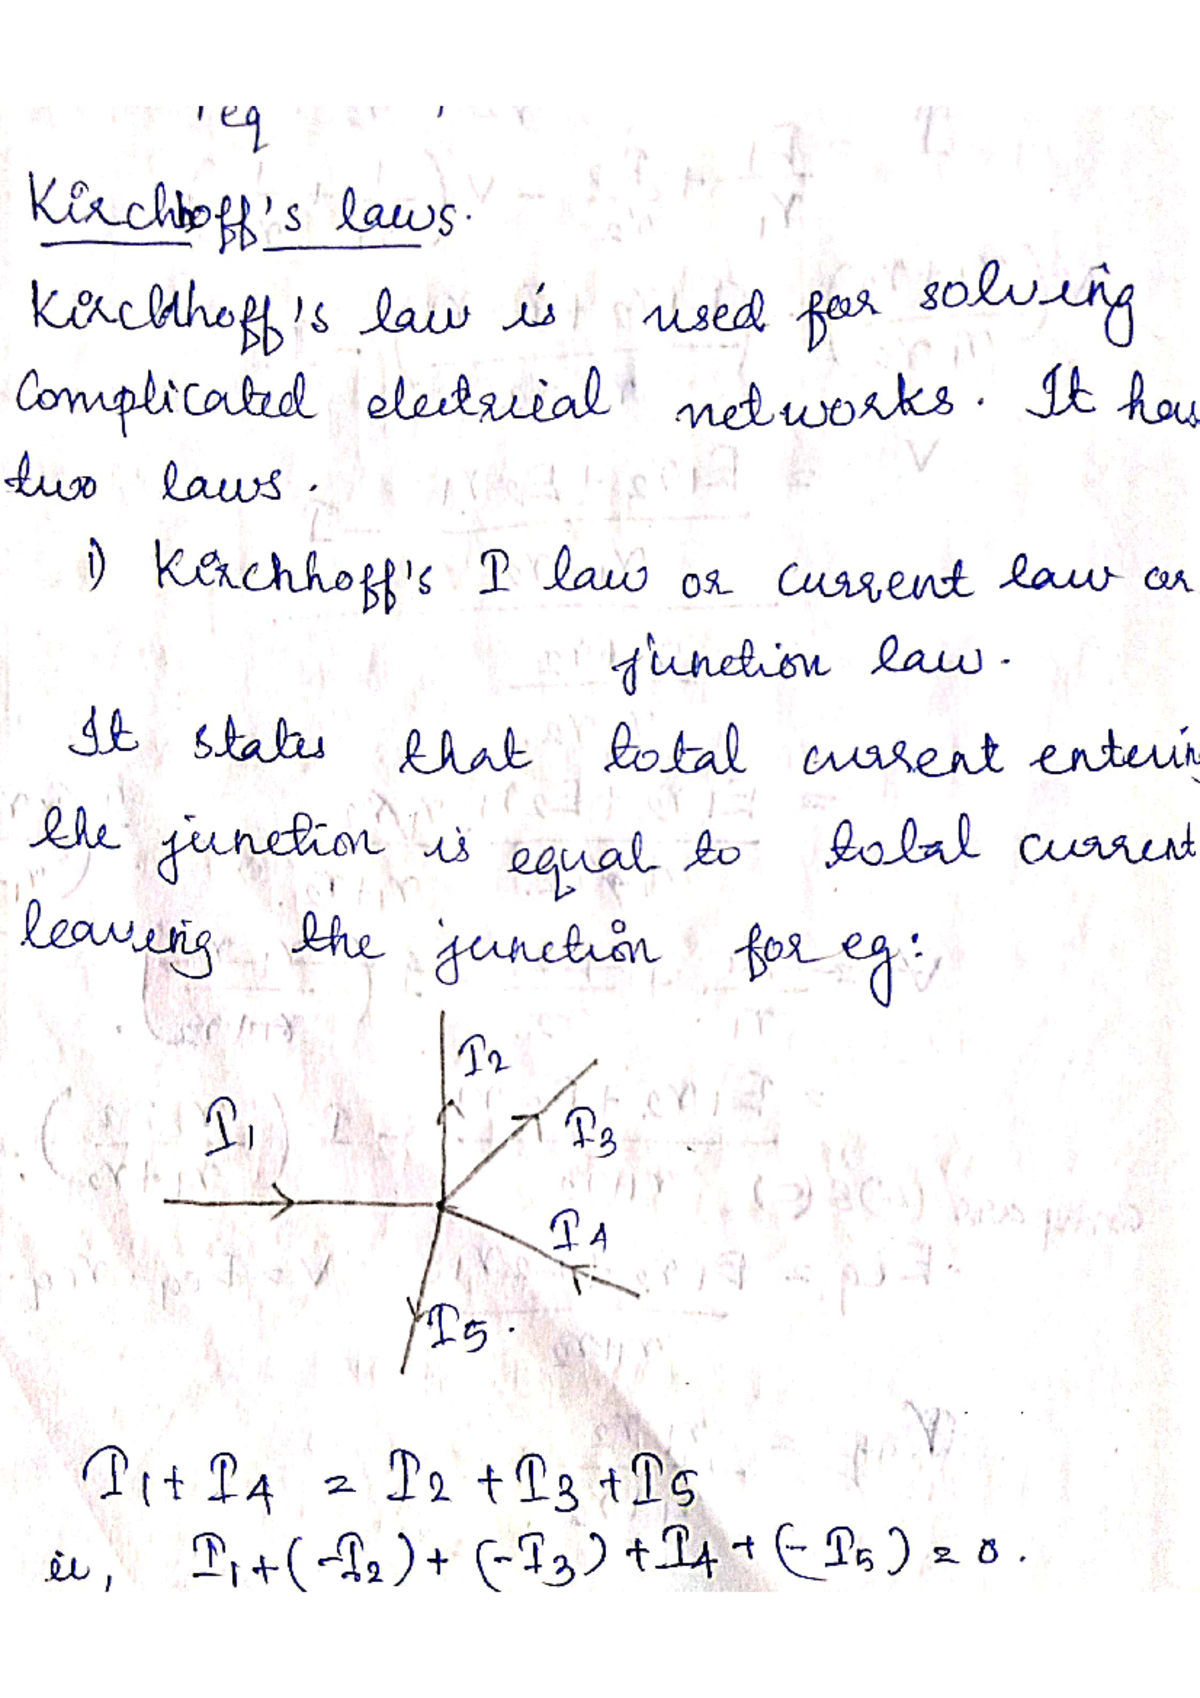 eq
Kirchhoff's laws.
Kirchhoff's law is used for solving
Complicated electrical networks. It has
two laws.
i) Kirchhoff's I law or current law or
junction law.
It states that total current entering
the junction is equal to total current
leaving the junction for eg:
I2
I1
I3
I4
I5.
I1 + I4 = I2 + I3 + I5
ie, I1 + (-I2) + (-I3) + I4 + (-I5) = 0.